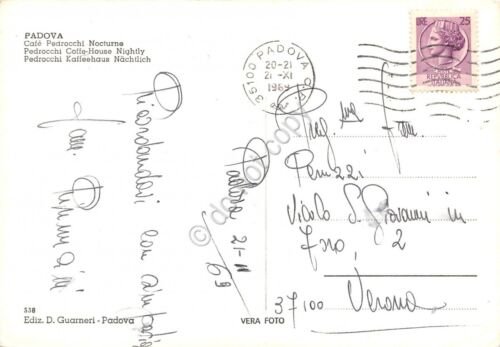 PADOVA
Café Pedrocchi Nocturne
Pedrocchi Coffe-House Nightly
Pedrocchi Kaffeehaus Nächtlich
35100 PADOVA
20-21
21 -XI
1969
LIRE 25
REPUBBLICA
ITALIANA
Ricordandovi con simpatia
Fam.
Padova 21-11
69
Fam.
Vicolo S. Giovanni in
Foro, 2
37100 Verona
538
Ediz. D. Guarneri - Padova
VERA FOTO